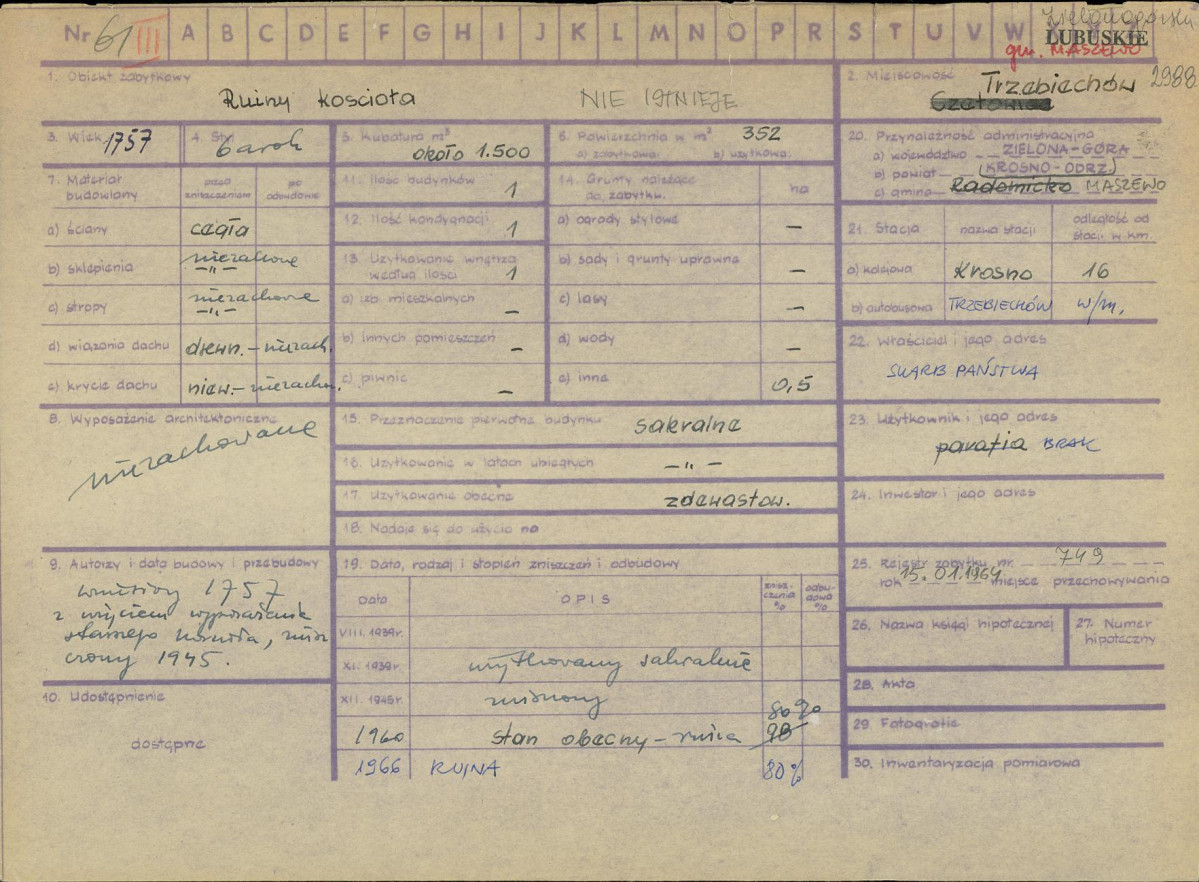 Nr 61 III A B C D E F G H I J K L M N O P R S T U V W Zielonogórskie
LUBUSKIE
gm. MASZEWO
1. Obiekt zabytkowy
Ruiny kościoła NIE ISTNIEJE
2. Miejscowość Trzebiechów 2988
3. Wiek 1757
4. Styl barok
5. Kubatura m³
około 1.500
6. Powierzchnia w m² 352
a) zabytkowa: b) użytkowa:
20. Przynależność administracyjna
a) województwo ZIELONA-GÓRA
b) powiat KROSNO-ODRZ.
c) gmina Radomicko MASZEWO
7. Materiał budowlany
przed zniszczeniem
po odbudowie
a) ściany cegła
b) sklepienia niezachowe
-"-
c) stropy niezachowe
-"-
d) wiązania dachu drewn. - niezach.
e) krycie dachu niew. - niezachow.
11. Ilość budynków 1
12. Ilość kondygnacji 1
13. Użytkowanie wnętrza
według ilości 1
a) izb mieszkalnych -
b) innych pomieszczeń -
c) piwnic -
14. Grunty należące
do zabytku. ha
a) ogrody stylowe -
b) sady i grunty uprawne -
c) lasy -
d) wody -
e) inne 0,5
21. Stacja nazwa stacji odległość od stacji w km.
a) kolejowa Krosno 16
b) autobusowa TRZEBIECHÓW w/m.
22. Właściciel i jego adres
SKARB PAŃSTWA
8. Wyposażenie architektoniczne
niezachowane
15. Przeznaczenie pierwotne budynku sakralne
16. Użytkowanie w latach ubiegłych -"-
17. Użytkowanie obecne zdewastow.
18. Nadaje się do użycia na
23. Użytkownik i jego adres
parafia BRAK
24. Inwestor i jego adres
9. Autorzy i data budowy i przebudowy
wzniesiony 1757
z użyciem wyposażenia
starszego kościoła, znisz
czony 1945.
10. Udostępnienie
dostępne
19. Data, rodzaj i stopień zniszczeń i odbudowy
Data OPIS znisz-czenia % odbu-dowa %
VIII. 1939r.
XI. 1939r użytkowany sakralnie
XII. 1945r. zniszczony 80%
1960 stan obecny - ruina 90
1966 RUINA 80%
25. Rejestr zabytku nr. 749
rok 15.01.1964 miejsce przechowywania
26. Nazwa księgi hipotecznej
27. Numer hipoteczny
28. Akta
29. Fotografie
30. Inwentaryzacja pomiarowa